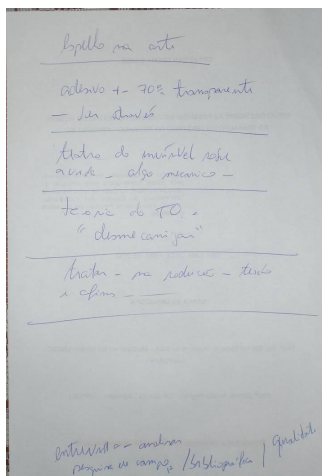 Espelho na arte
adesivo +- 70% transparente
— ver através
teatro do invisível sobre
algo mecânico —
teoria do TO -
"desmecanizar"
- na - tesão
e afins -
entrevista - análise
pesquisa de campo / bibliográfica / qualitat